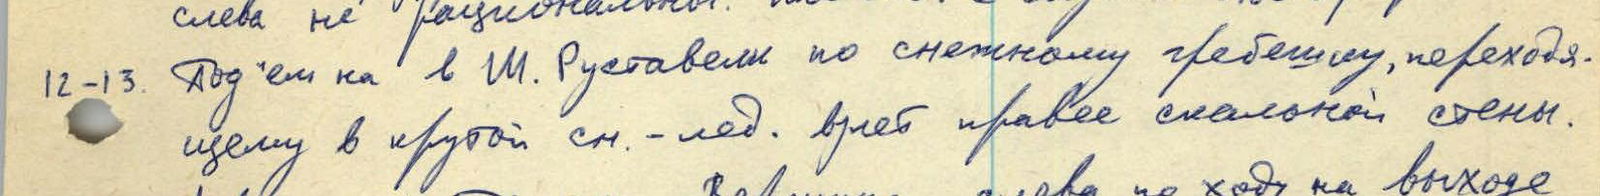 слева не рациональны.
12-13. Под"ем на в Ш. Руставели по снежному гребешку, переходя-
щему в крутой сн.-лед. взлет правее скальной стены.
слева по ходу на выходе